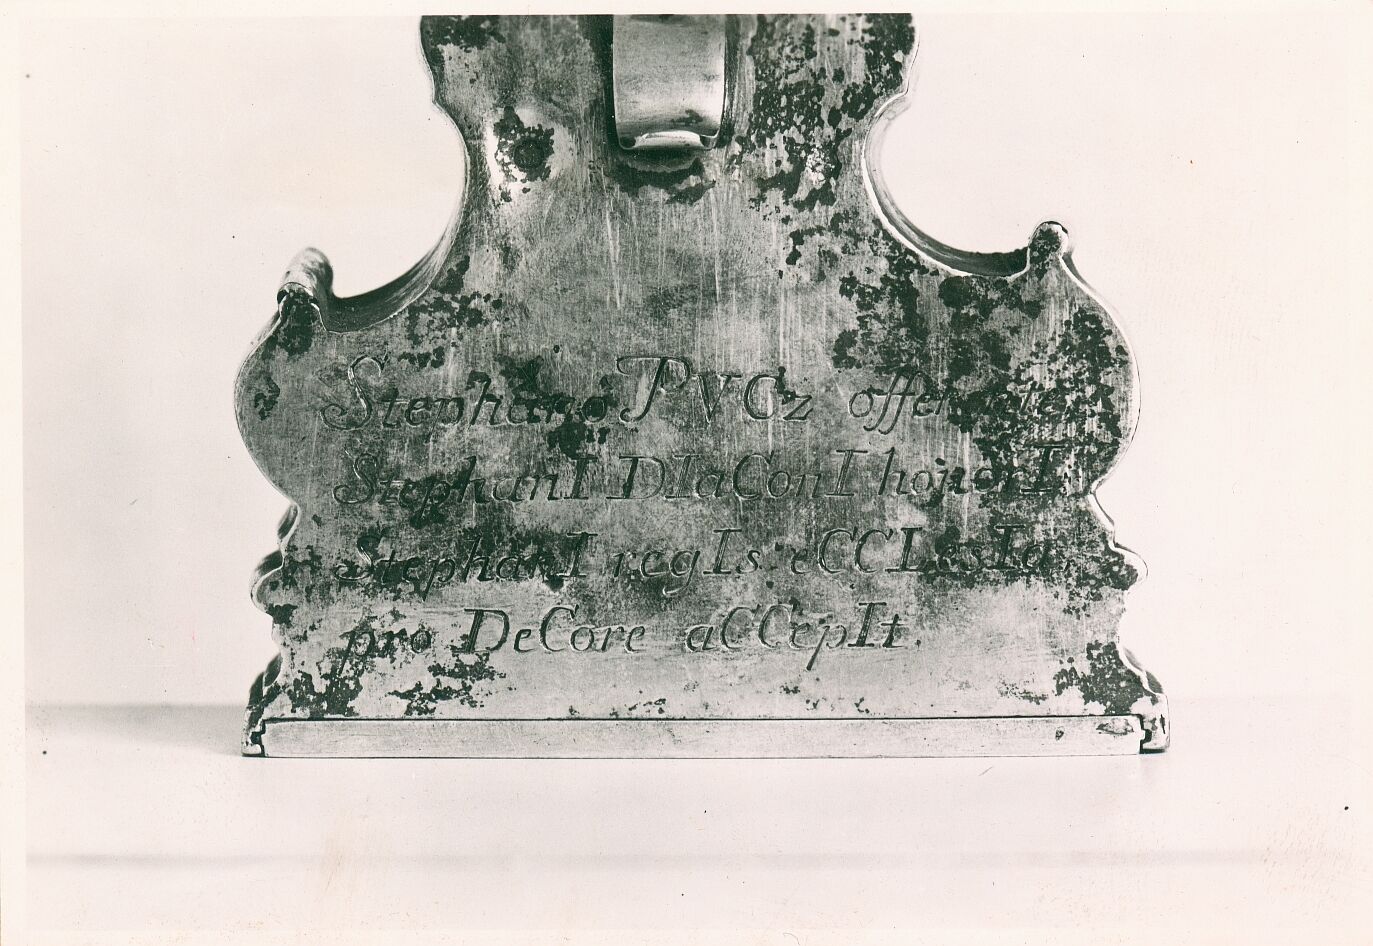 Stephano PVCz offerente
StephanI DIaConI honorI
StephanI regIs eCCLesIa,
pro DeCore aCCepIt.